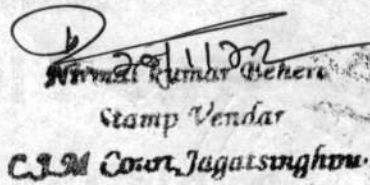 Nirmal Kumar Behera
Stamp Vendar
C.J.M Court, Jagatsinghpu.